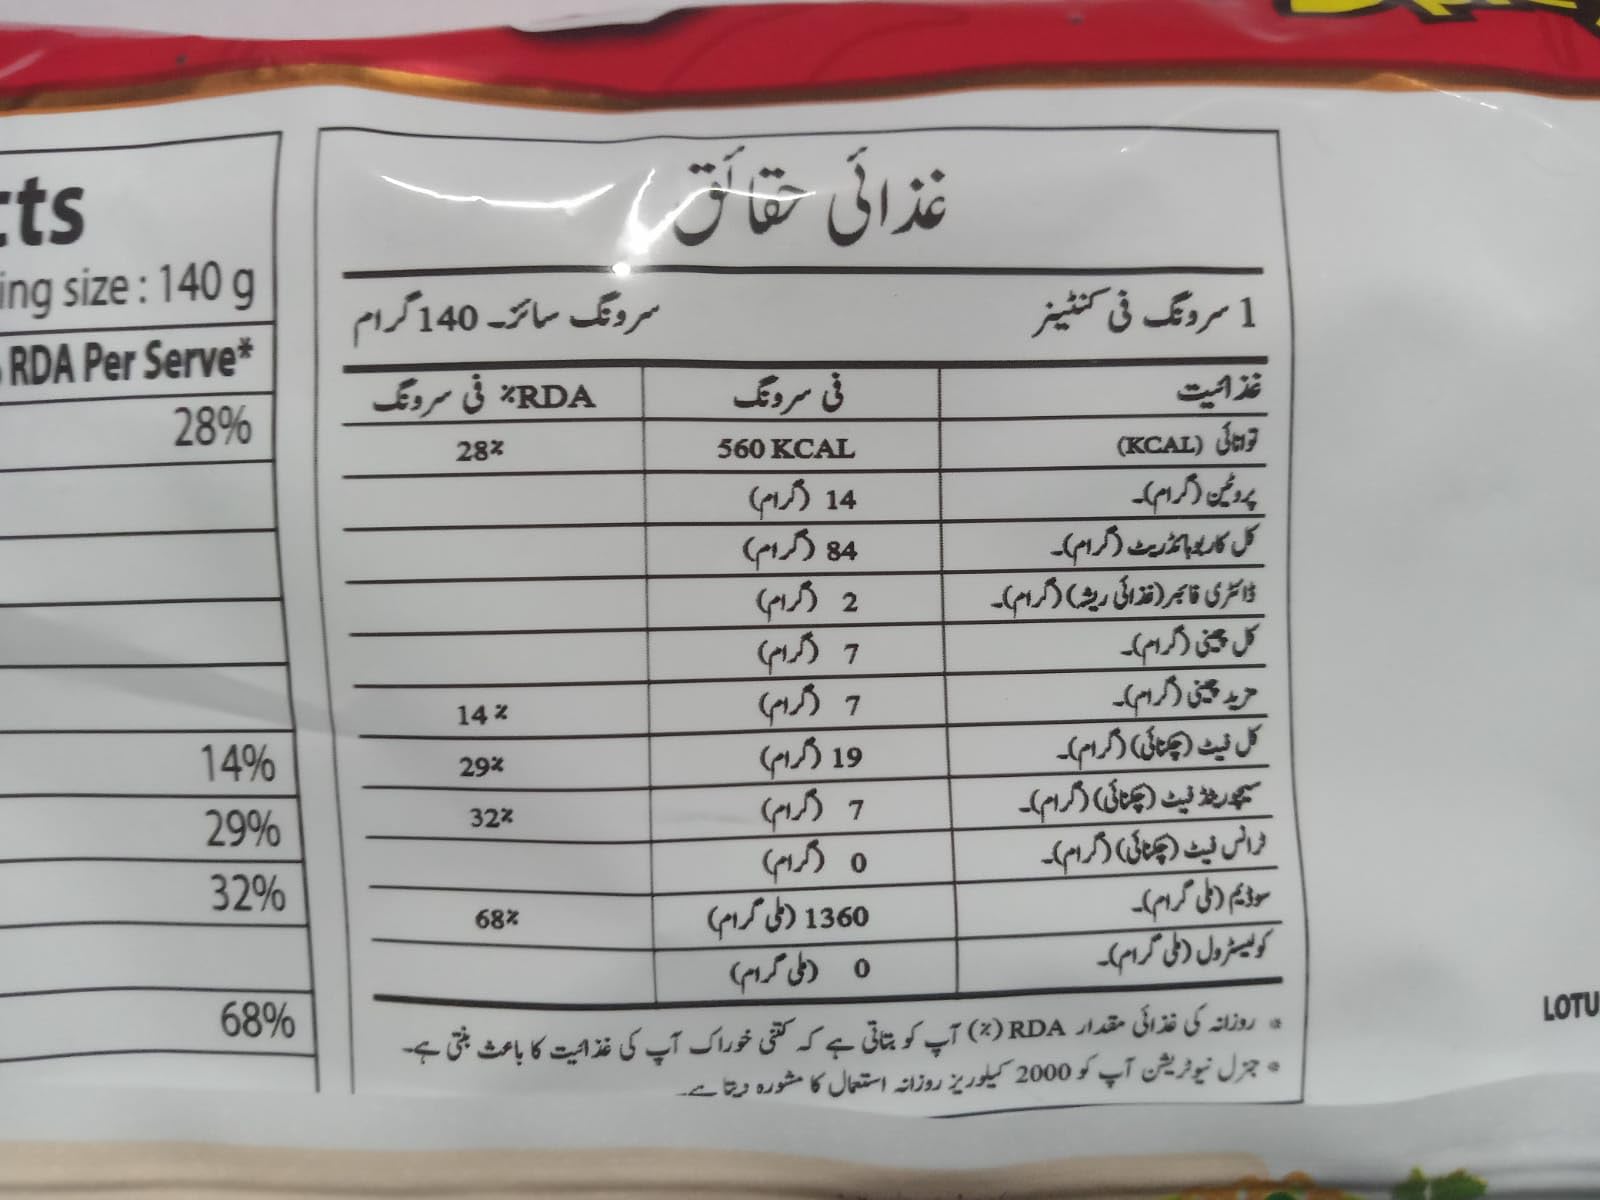 cts
ing size : 140 g
RDA Per Serve*
28%
14%
29%
32%
68%
غذائی حقائق
1 سرونگ فی کنٹینر سرونگ سائز۔ 140 گرام
غذائیت فی سرونگ %RDA فی سرونگ
توانائی (KCAL) 560 KCAL 28%
پروٹین (گرام)۔ 14 (گرام)
کل کاربوہائڈریٹ (گرام)۔ 84 (گرام)
ڈائٹری فائبر (غذائی ریشہ) (گرام)۔ 2 (گرام)
کل چینی (گرام)۔ 7 (گرام)
مزید چینی (گرام)۔ 7 (گرام) 14%
کل فیٹ (چکنائی) (گرام)۔ 19 (گرام) 29%
سیچوریٹڈ فیٹ (چکنائی) (گرام)۔ 7 (گرام) 32%
ٹرانس فیٹ (چکنائی) (گرام)۔ 0 (گرام)
سوڈیم (ملی گرام)۔ 1360 (ملی گرام) 68%
کولیسٹرول (ملی گرام)۔ 0 (ملی گرام)
* روزانہ کی غذائی مقدار RDA (%) آپ کو بتاتی ہے کہ کتنی خوراک آپ کی غذائیت کا باعث بنتی ہے۔
* جنرل نیوٹریشن آپ کو 2000 کیلوریز روزانہ استعمال کا مشورہ دیتا ہے۔
LOTU